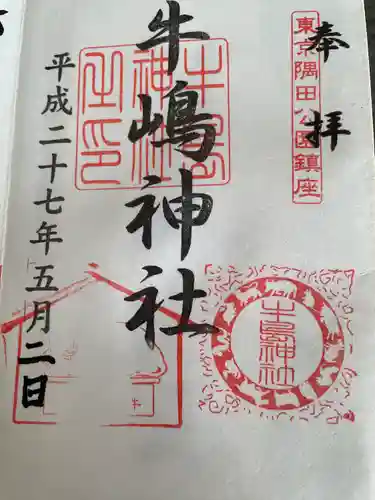 奉拝
東京隅田公園鎮座
牛嶋神社
牛嶋神社之印
平成二十七年五月二日
牛島神社
牛